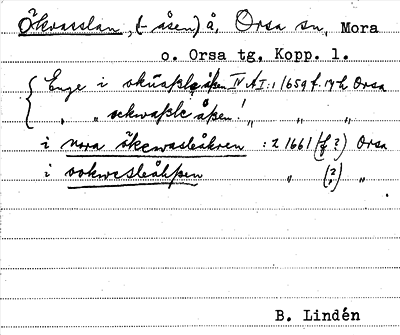 Ökvasslan, (-åsen) å, Orsa sn, Mora
o. Orsa tg, Kopp. l.
Enge i okúaßleåßen IV A I:1 1659 f. 142 Orsa
" " ockwaßle åßen! " " "
i nora ökewasleåkren :2 1661 (f ?) Orsa
i ookwesleåhßen " (?) "
B. Lindén